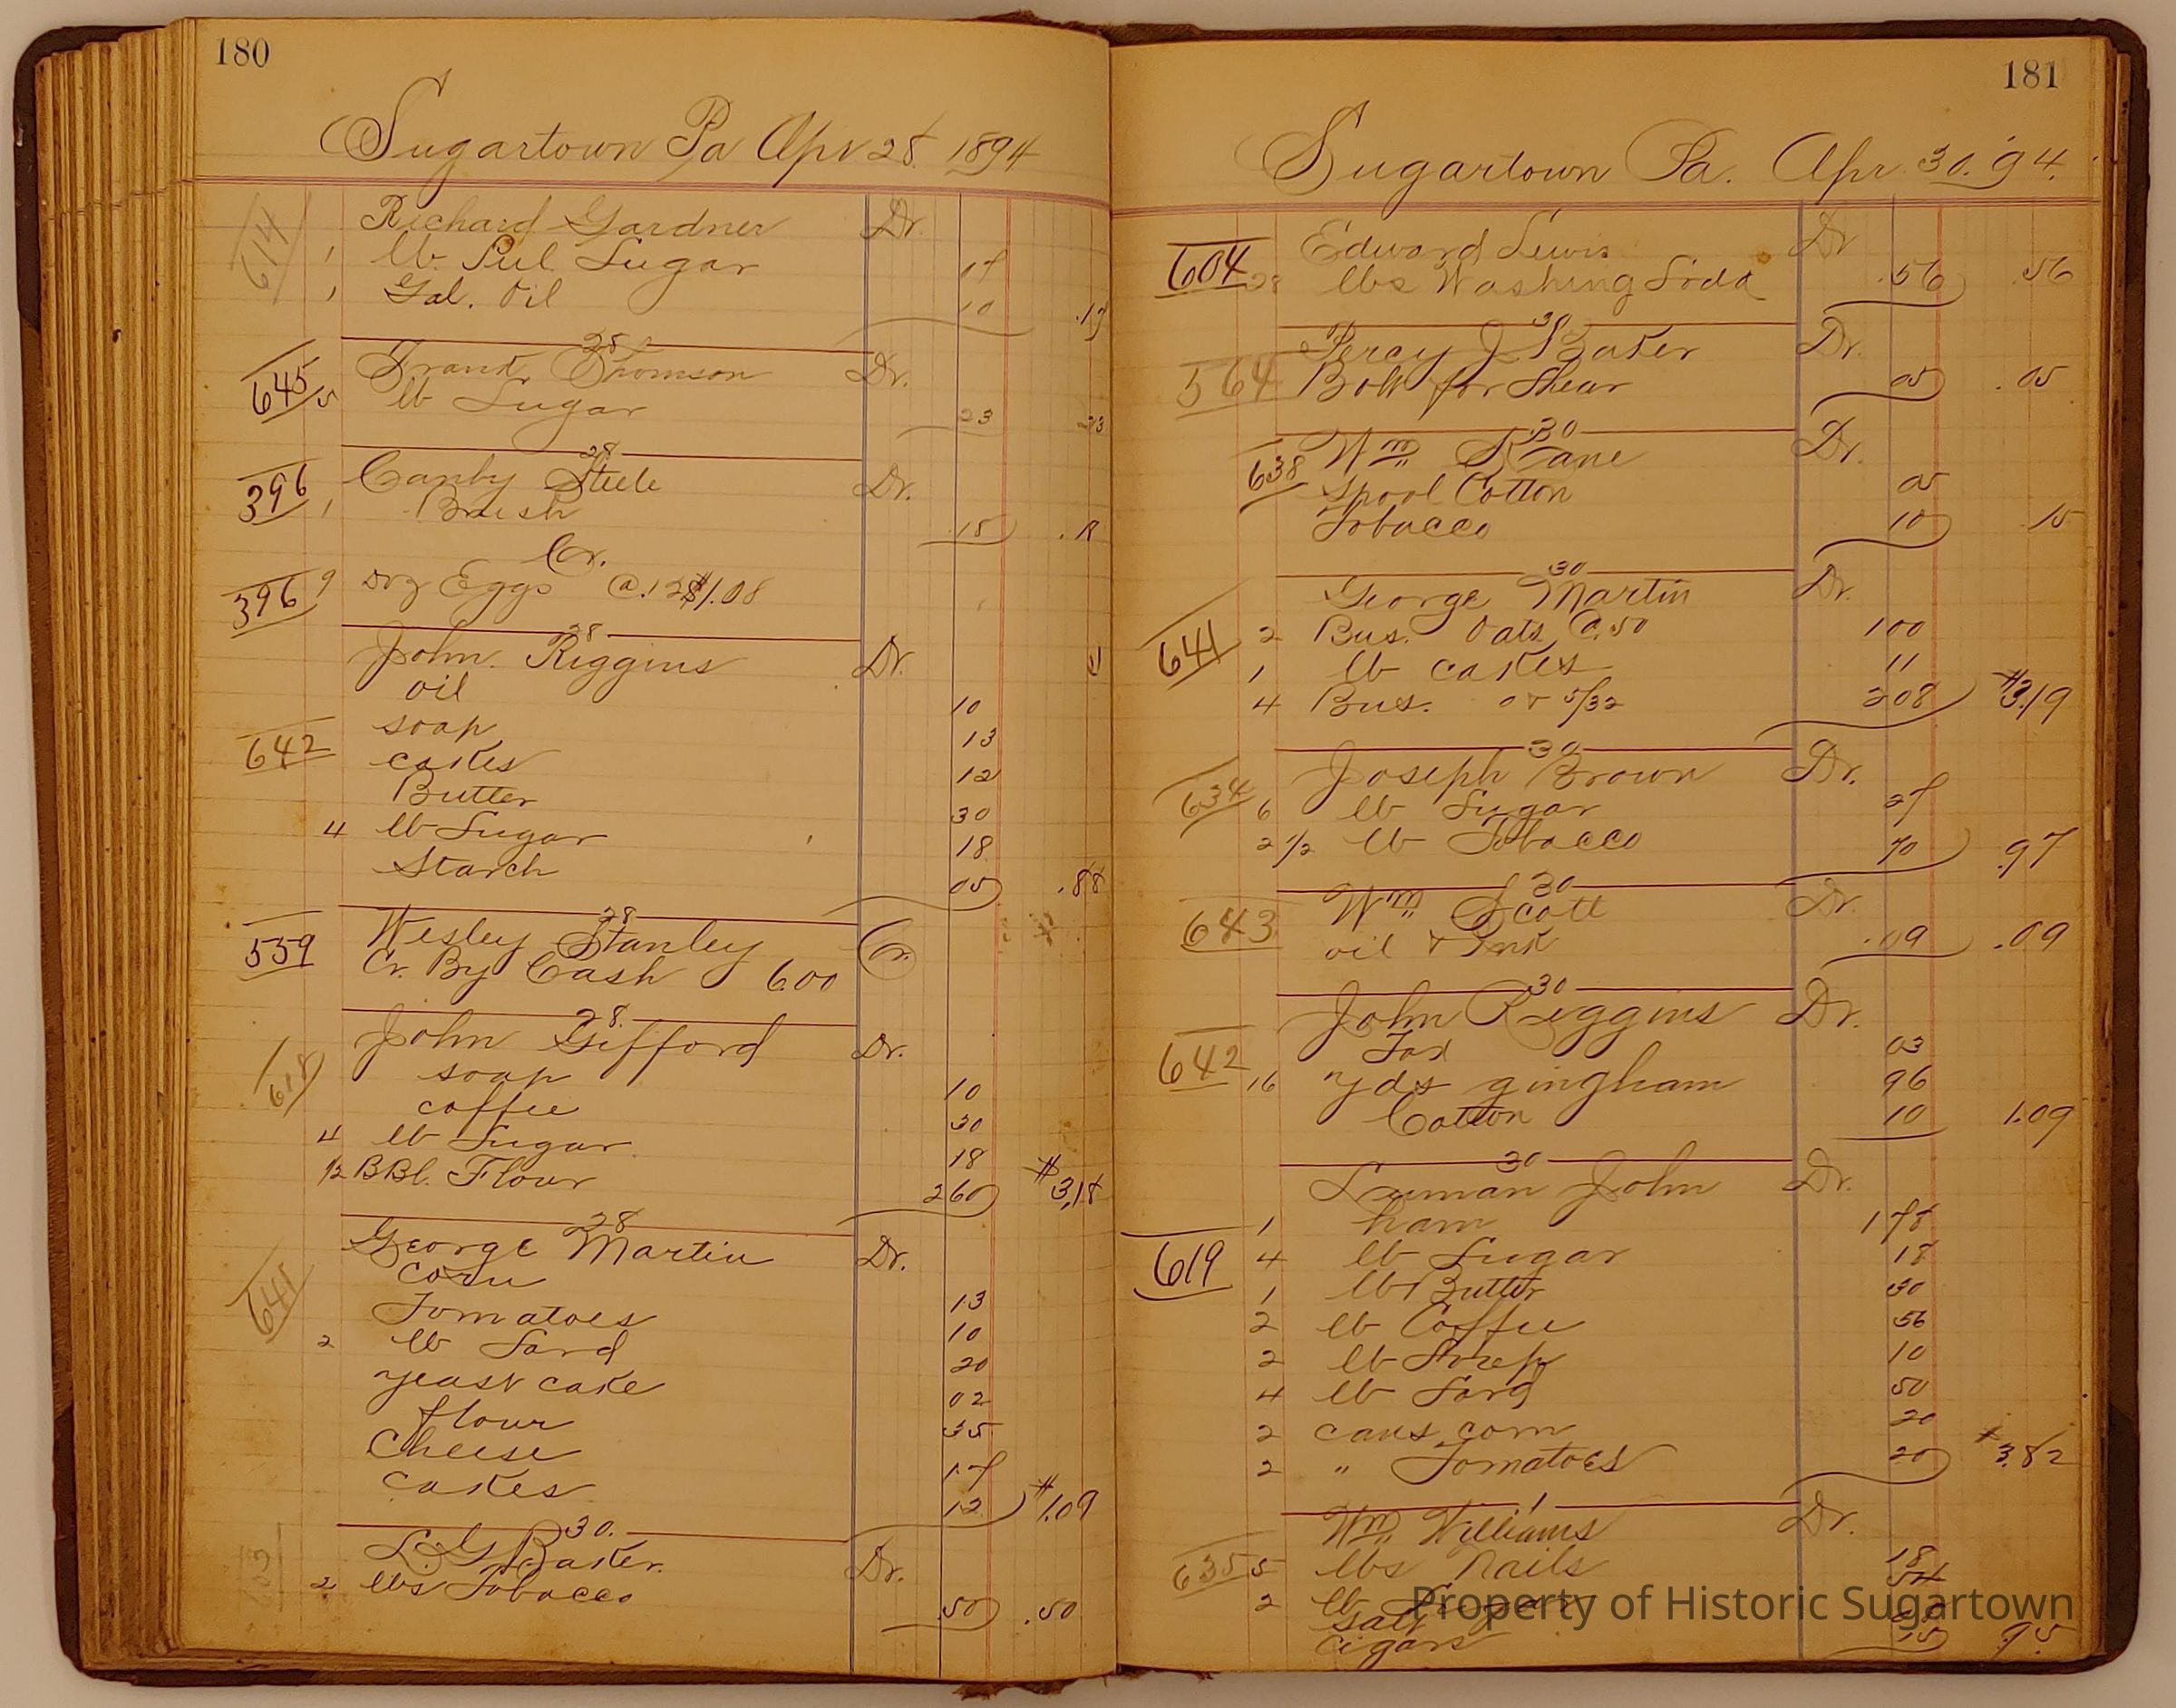 180
Sugartown Pa Apr 28. 1894
614 Richard Gardner Dr.
1 lb. Pul. Sugar 07
1 Gal. Oil 10 .17
28
645 Frank Thomson Dr.
5 lb Sugar 23 23
28
396 Canby Steele Dr.
1 Brush .15
Cr.
396 9 Doz Eggs @.12 $1.08
28
John Riggins Dr.
oil 10
soap 13
642 cakes 12
Butter 30
4 lb Sugar 18
Starch 05 .88
28
559 Wesley Stanley Cr.
Cr. By Cash 6.00
28.
618 John Gifford Dr.
soap 10
coffee 30
4 lb Sugar 18
1/2 BBl. Flour 260 $3.18
28
641 George Martin Dr.
corn 13
Tomatoes 10
2 lb Lard 20
yeast cake 02
flour 35
Cheese 17
cakes 12 $1.09
30.
603 L. G. Baker. Dr.
2 lbs Tobacco .50 .50
181
Sugartown Pa. Apr 30. '94.
604 Edward Lewis Dr
28 lbs Washing Soda .56 .56
30
564 Percy J Baker Dr.
Bolt for Shear 05 .05
30
638 Wm Kane Dr.
Spool Cotton 05
Tobacco 10 .15
30
George Martin Dr.
641 2 Bus. Oats @.50 100
1 lb cakes 11
4 Bus. 208 $3.19
30
634 Joseph Brown Dr.
6 lb Sugar 27
2 1/2 lb Tobacco 70 .97
30
643 Wm Scott Dr.
oil & Ink .09 .09
30
John Riggins Dr.
642 03
16 yds gingham 96
Cotton 10 1.09
30
Luman John Dr.
1 ham 178
619 4 lb Sugar 18
1 lb Butter 30
2 lb Coffee 56
2 lb 10
4 lb Lard 50
2 cans corn 20
2 " Tomatoes 20 $3.82
1
Wm Williams Dr.
635 5 lbs Nails 18
2 lb
Salt
Cigars 15 95
Property of Historic Sugartown